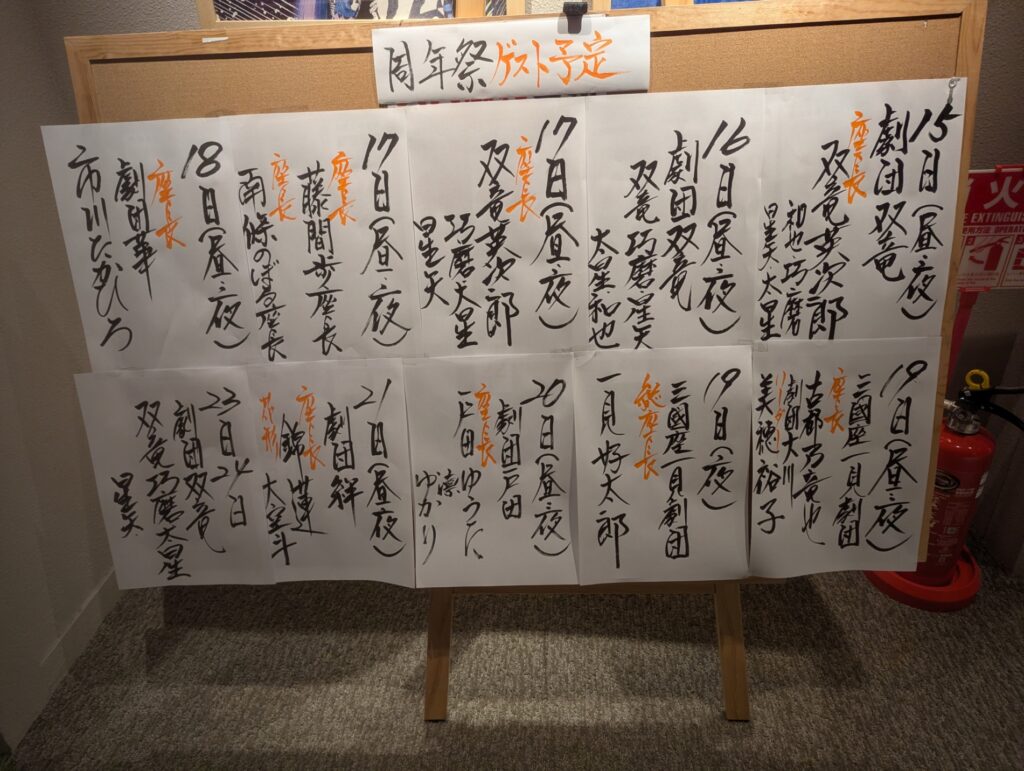 周年祭ゲスト予定
15日(昼・夜)
劇団双竜
座長
双竜英次郎
和也 巧磨
星矢 大星
16日(昼・夜)
劇団双竜
双竜 巧磨 星矢
大星 和也
17日(昼・夜)
座長
双竜英次郎
巧磨 大星
星矢
17日(昼・夜)
座長
藤間歩座長
座長
南條のぼる座長
18日(昼・夜)
座長
劇団華
市川たかひろ
19日(昼・夜)
三國座一見劇団
座長
古都乃竜也
劇団大川
リーダー
美穂裕子
19日(夜)
三國座一見劇団
総座長
一見好太郎
20日(昼・夜)
劇団戸田
座長
戸田ゆうた
ゆかり
21日(昼・夜)
劇団絆
座長
錦 蓮
花形
大空斗
23日 24日
劇団双竜
双竜 巧磨 大星
星矢
火
EXTINGUIS